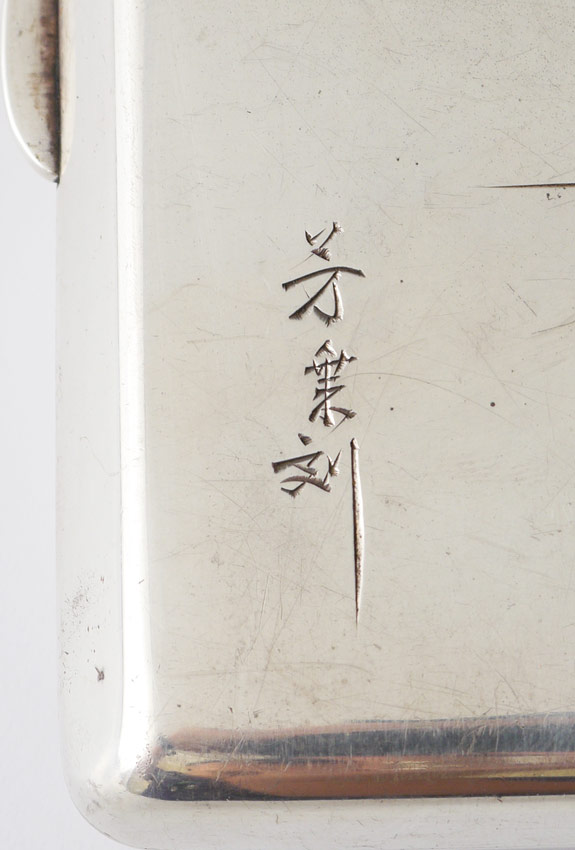 芳業刻